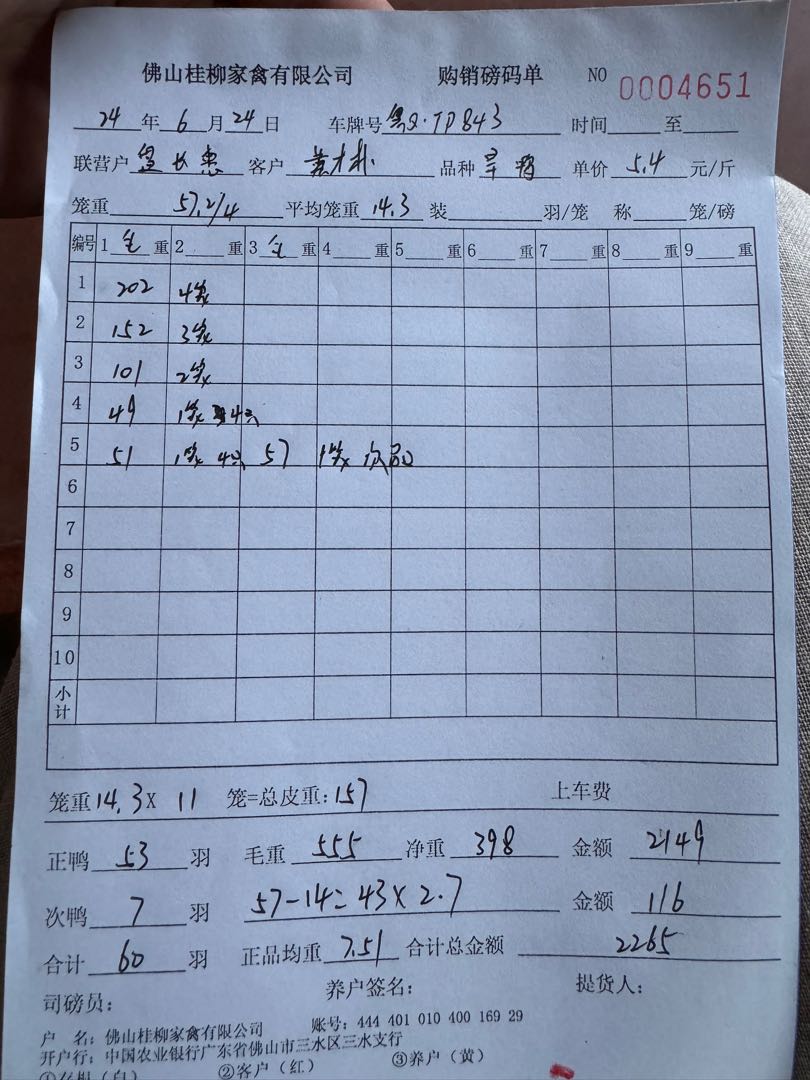 佛山桂柳家禽有限公司 购销磅码单 NO 0004651
24年6月24日 车牌号 粤Q·TD843 时间 至
联营户 客户 黄才 品种 单价 5.4 元/斤
笼重 57.2/4 平均笼重 14.3 装 羽/笼 称 笼/磅
编号 1 毛 重 2 重 3 毛 重 4 重 5 重 6 重 7 重 8 重 9 重
1 202 4笼
2 152 3笼
3 101 2笼
4 49 1笼 4只
5 51 1笼 4只 57 1笼 次品
6
7
8
9
10
小计
笼重 14.3 X 11 笼=总皮重: 157 上车费
正鸭 53 羽 毛重 555 净重 398 金额 2149
次鸭 7 羽 57-14=43×2.7 金额 116
合计 60 羽 正品均重 7.51 合计总金额 2265
司磅员: 养户签名: 提货人:
户 名: 佛山桂柳家禽有限公司 账号: 444 401 010 400 169 29
开户行: 中国农业银行广东省佛山市三水区三水支行
①存根(白) ②客户(红) ③养户(黄)